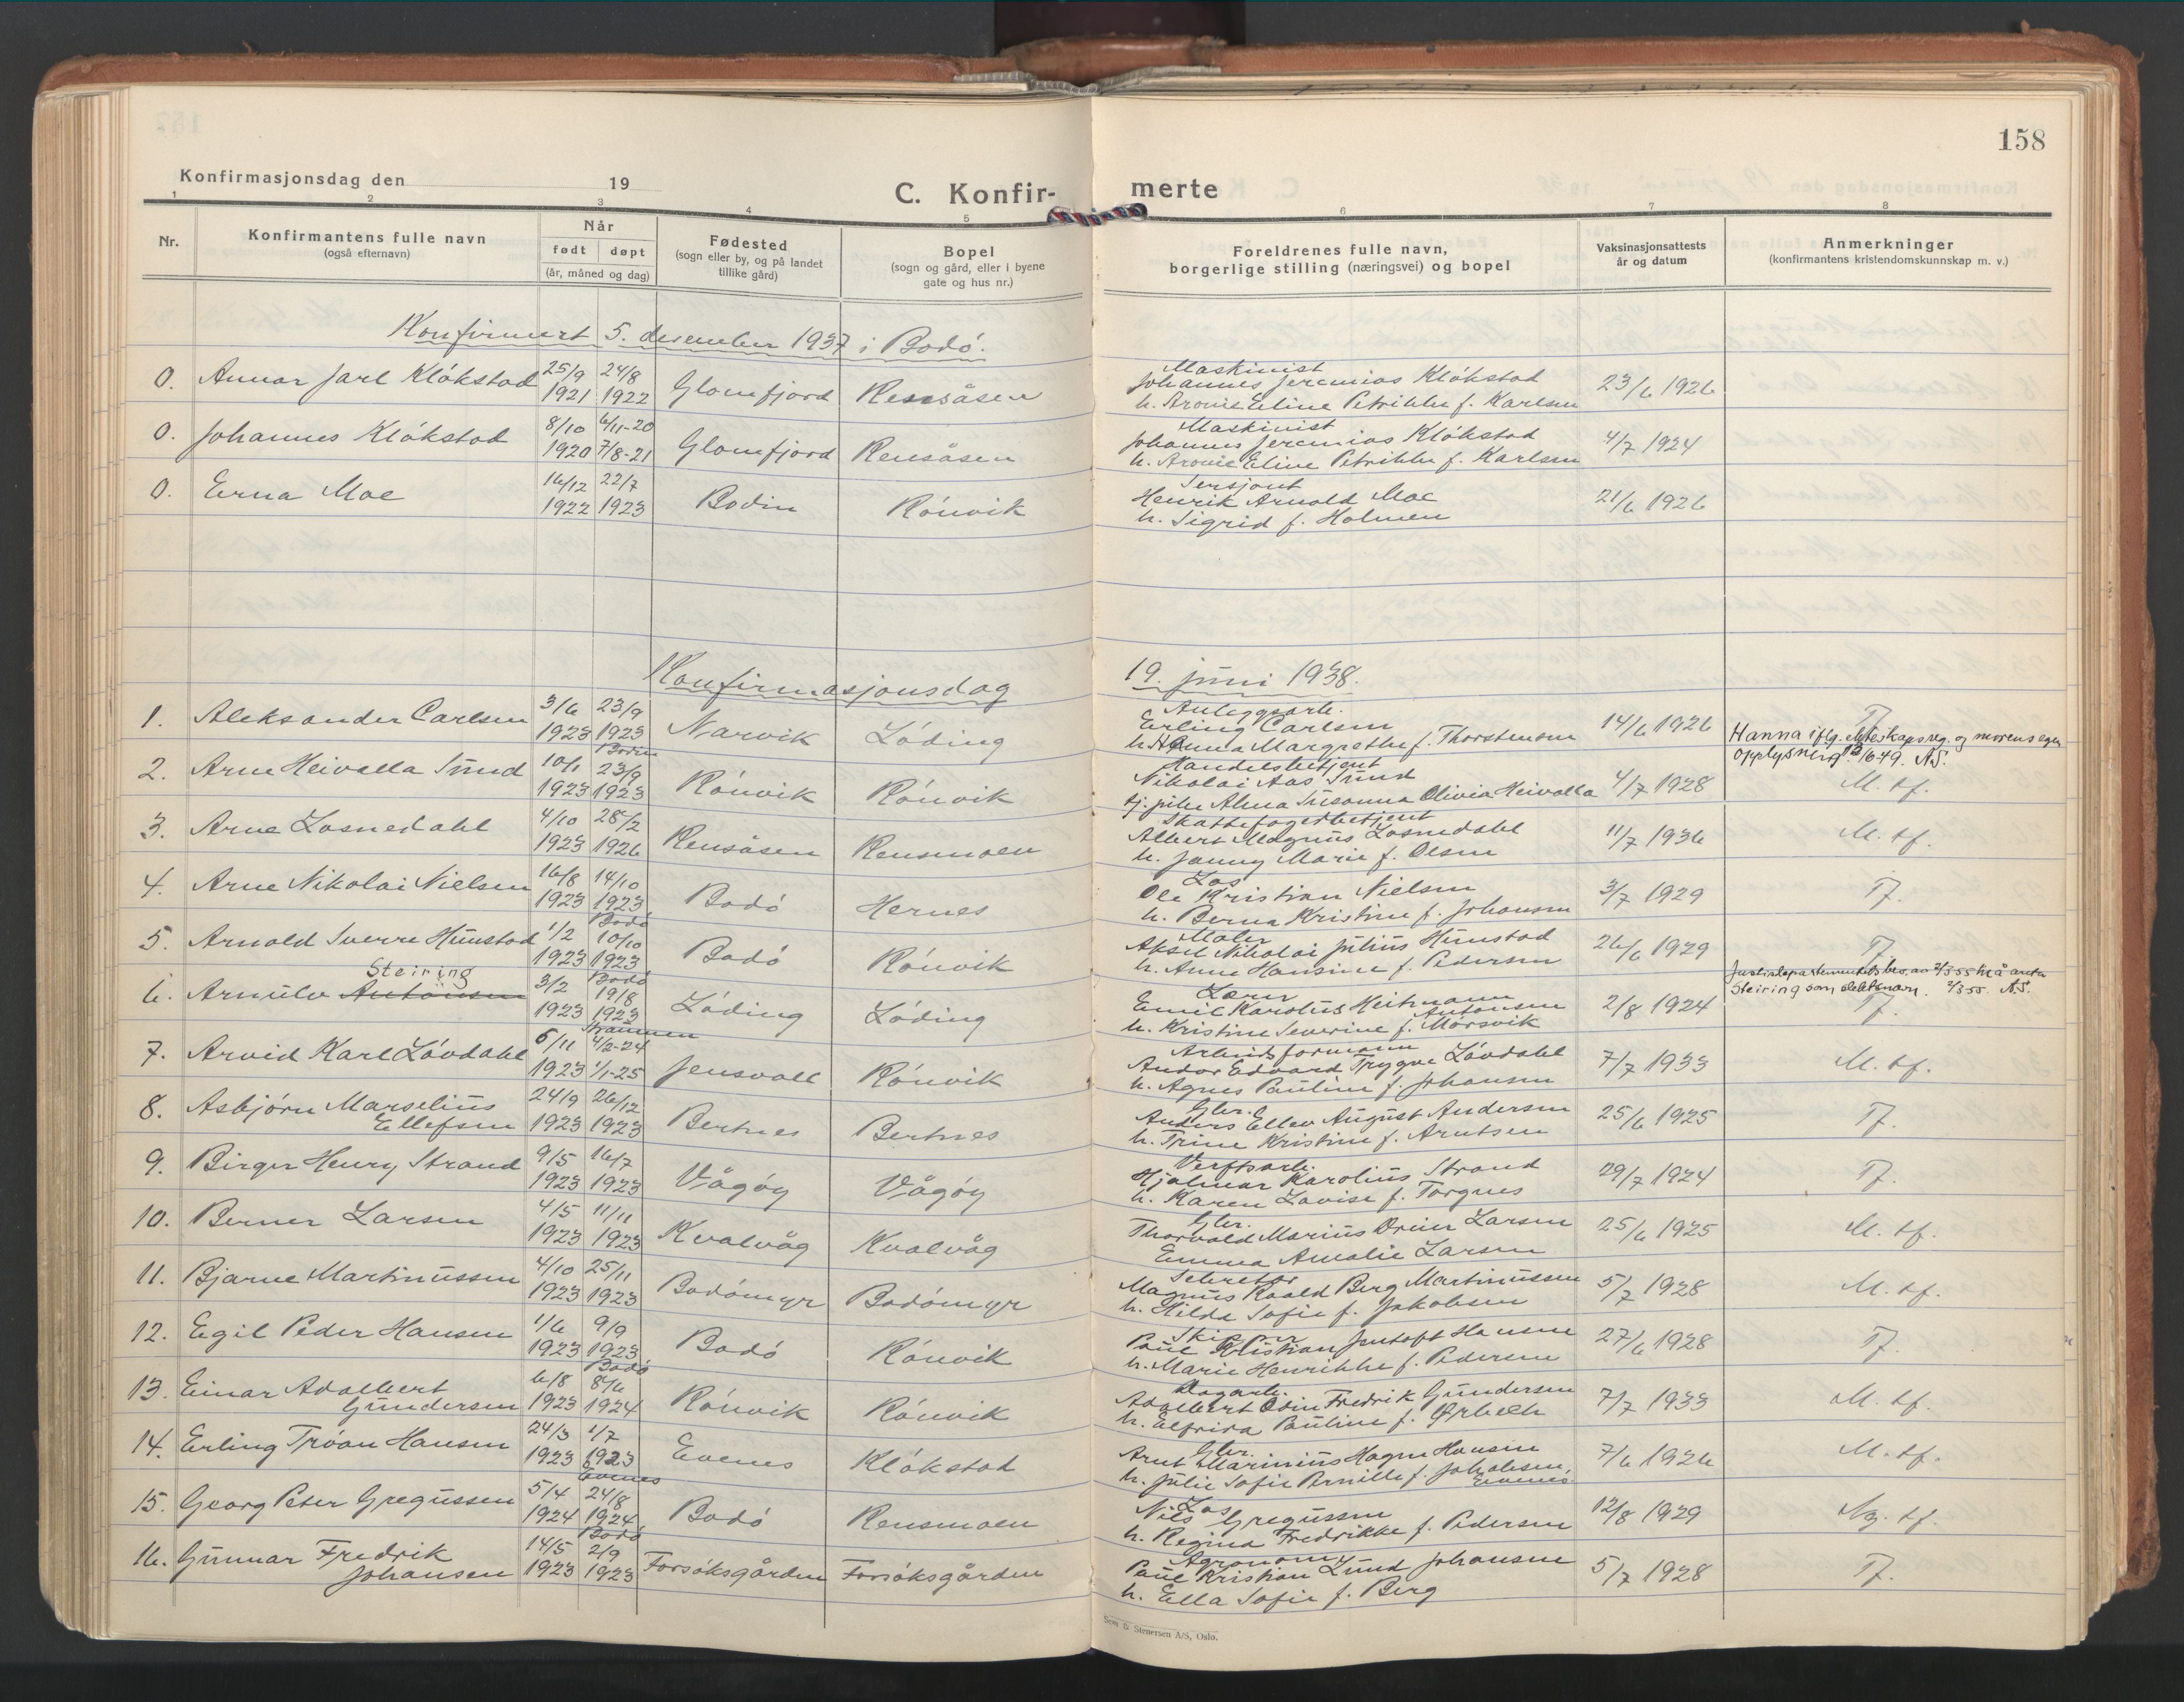 158
Konfirmasjonsdag den 19
C. Konfir-
merte
1 2 3 4 5 6 7 8
Nr.
Konfirmantens fulle navn
(også efternavn)
Når
født døpt
(år, måned og dag)
Fødested
(sogn eller by, og på landet
tillike gård)
Bopel
(sogn og gård, eller i byene
gate og hus nr.)
Foreldrenes fulle navn,
borgerlige stilling (næringsvei) og bopel
Vaksinasjonsattests
år og datum
Anmerkninger
(konfirmantens kristendomskunnskap m. v.)
Konfirmert 5. desember 1937 i Bodó.
Maskinist
0. Annar Jarl Klókstad 25/9 24/8 Glomfjord Rensåsen Johannes Jeremias Klókstad 23/6 1926
1921 1922 h. Arovie Eline Petrikke f. Karlsen
Maskinist
0. Johannes Klókstad 8/10 6/11-20 Glomfjord Rensåsen Johannes Jeremias Klókstad 4/7 1924
1920 7/8-21 h. Arovie Eline Petrikke f. Karlsen
Sersjant
0. Erna Moe 16/12 22/7 Bodin Rónvik Henrik Arnold Moe 21/6 1926
1922 1923 h. Sigrid f. Holmen
Konfirmasjonsdag 19. juni 1938.
Anleggsarb.
1. Aleksander Carlsen 3/6 23/9 Narvik Lóding Erling Carlsen 14/6 1926 Tf.
1923 1923 h. Hanna Margrethe f. Thorstensen
Hanna iflg. ekteskapsreg. og morens egen
opplysning 13/6-49. AS.
Bodin
Handelsbetjent
2. Arne Heivolla Sund 10/1 23/9 Rónvik Rónvik Nikolai Aas Sund 4/7 1928 M. tf.
1923 1923 tj.pike Alma Susanna Olivia Heivolla
Skattefogedbetjent
3. Arne Losnedahl 4/10 28/2 Rensåsen Rensmoen Albert Magnus Losnedahl 11/7 1936 M. tf.
1923 1926 h. Jenny Marie f. Olsen
Los
4. Arne Nikolai Nielsen 16/8 14/10 Bodó Hernes Ole Kristian Nielsen 3/7 1929 Tf.
1923 1923 h. Berna Kristine f. Johansen
Bodó
Maler
5. Arnold Sverre Hunstad 1/2 10/10 Bodó Rónvik Aksel Nikolai Julius Hunstad 26/6 1929 Tf.
1923 1923 h. Anne Hansine f. Pedersen
Steiring
Bodó
Justisdepartementets bev. av 2/3 55 til å anta
Steiring som slektsnavn. 2/3 55. AS.
Lærer
6. Arnulv Antonsen 3/2 19/8 Lóding Lóding Emil Karolus Heitmann Antonsen 2/8 1924 Tf.
1923 1923 h. Kristine Severine f. Mórsvik
Strømmen
Arbeidsformann
7. Arvid Karl Lóvdahl 5/11 4/2-24 Jensvoll Rónvik Andor Edvard Trygve Lóvdahl 7/7 1933 M. tf.
1923 1/1-25 h. Agnes Pauline f. Johansen
Gbr.
8. Asbjórn Marselius 24/9 26/12 Bertnes Bertnes Anders Ellev August Andersen 25/6 1925 Tf.
Ellefsen 1923 1923 h. Trine Kristine f. Arntsen
Verftsarb.
9. Birger Henry Strand 9/5 16/7 Vågóy Vågóy Hjalmar Karolius Strand 29/7 1924 Tf.
1923 1923 h. Karen Lovise f. Torgnes
Gbr.
10. Berner Larsen 4/5 11/11 Kvalvåg Kvalvåg Thorvald Marius Dreier Larsen 25/6 1925 M. tf.
1923 1923 Emma Amalie Larsen
Sekretær
11. Bjarne Martinussen 4/10 25/11 Bodómyr Bodómyr Magnus Roald Berg Martinussen 5/7 1928 M. tf.
1923 1923 h. Hilda Sofie f. Jakobsen
Skipper
12. Egil Peder Hansen 1/6 9/9 Bodó Rónvik Paul Kristian Jentoft Hansen 27/6 1928 Tf.
1923 1923 h. Marie Henrikke f. Pedersen
Bodó
13. Einar Adalbert 6/8 8/6 Rónvik Rónvik Adalbert Odin Fredrik Gundersen 7/7 1933 M. tf.
Gundersen 1923 1924 h. Elfrida Pauline f. Ørbech
Gbr.
14. Erling Tróan Hansen 24/3 1/7 Evenes Klókstad Arnt Marinius Hagen Hansen 7/6 1926 M. tf.
1923 1923 h. Julie Sofie Pernille f. Jakobsen, Evenes
Evenes
Los
15. Georg Peter Gregussen 5/4 24/8 Bodó Rensmoen Nils Gregussen 12/8 1929 Ng. tf.
1924 1924 h. Regina Fredrikke f. Pedersen
Bodó
Agronom
16. Gunnar Fredrik 14/5 2/9 Forsóksgården Forsóksgården Paul Kristian Lund Johansen 5/7 1928 Tf.
Johansen 1923 1923 h. Ella Sofie f. Berg
Sem & Stenersen A/S, Oslo.